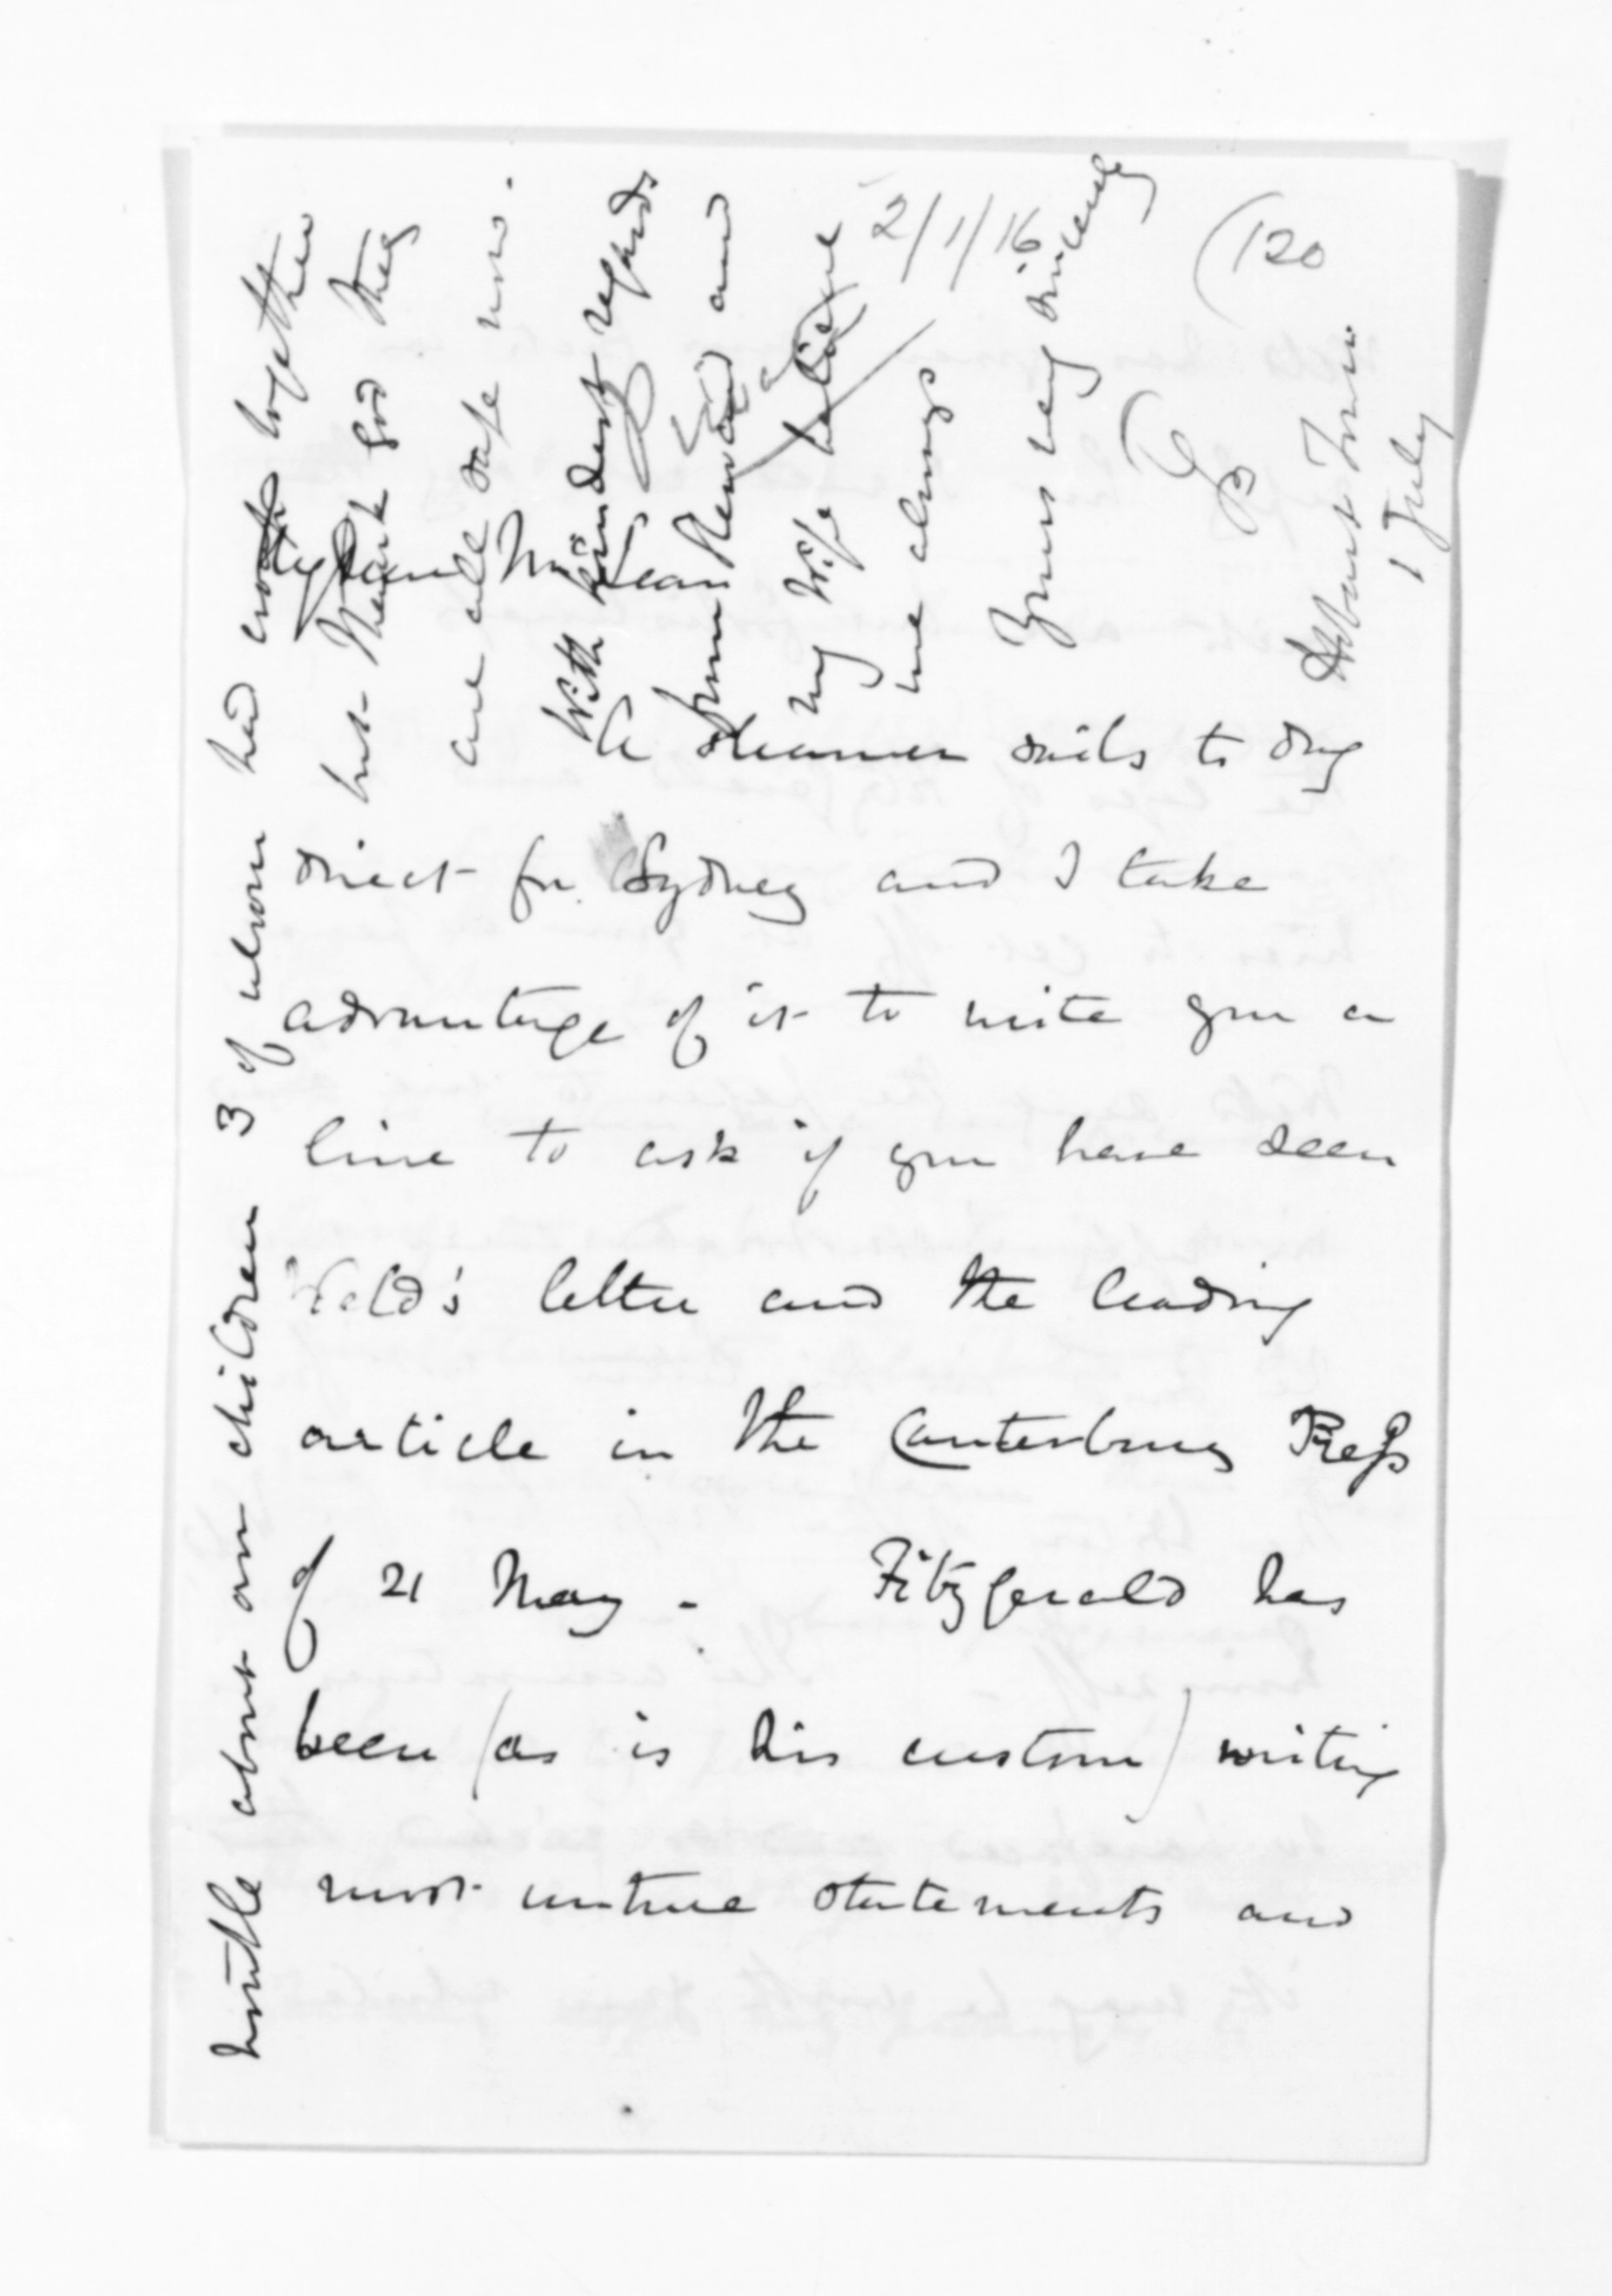 2/1/16
(120
Hobart Town
1 July
My dear McLean
A steamer sails to day
direct for Sydney and I take
advantage of it to write you a
line to ask if you have seen
Weld's letter and the leading
article in the Canterbury Press
of 21 May - Fitzgerald has
been (as is his custom) writing
most untrue statements and
trouble about our children 3 of whom had croup together
but Thank God they
are all safe now.
With kindest regards
from and
my Wife believe
me always
Yours very sincerely